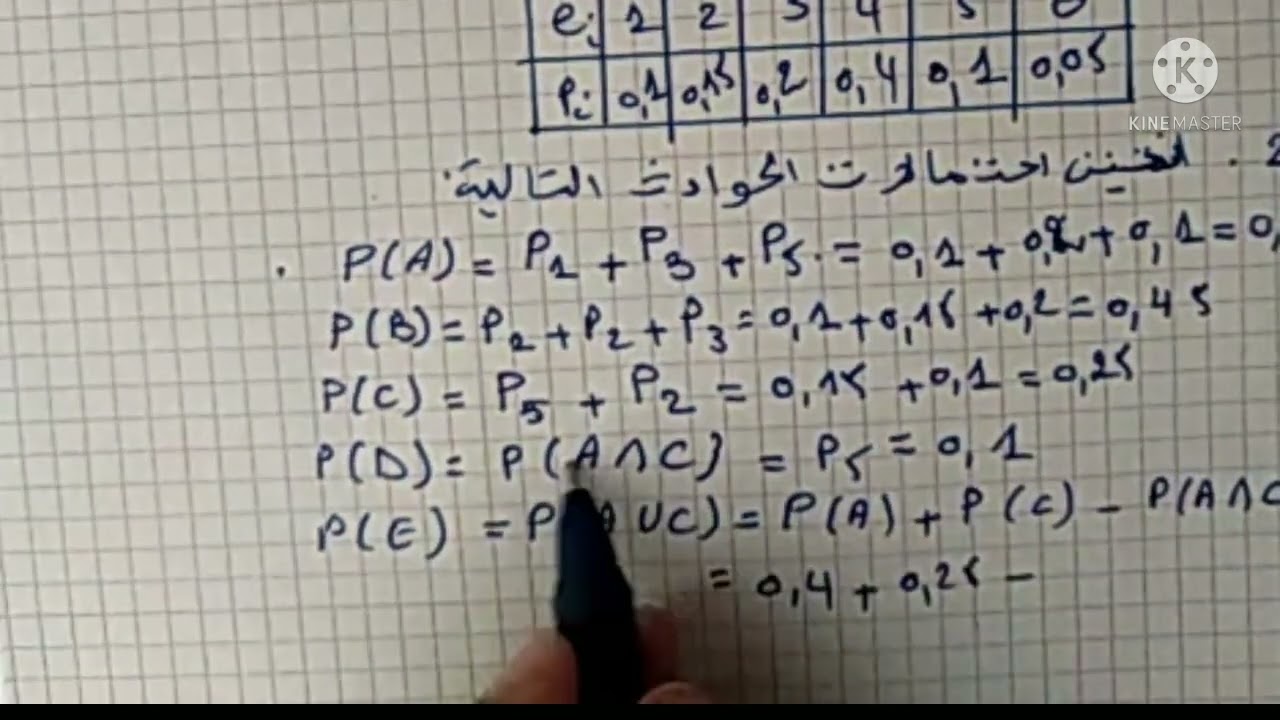 eᵢ 1 2 3 4 5 6
Pᵢ 0,1 0,15 0,2 0,4 0,1 0,05
KINEMASTER
2. احتمالات الحوادث التالية:
. P(A) = P₁ + P₃ + P₅ = 0,1 + 0,2 + 0,1 = 0,
P(B) = P₁ + P₂ + P₃ = 0,1 + 0,15 + 0,2 = 0,45
P(C) = P₅ + P₂ = 0,15 + 0,1 = 0,25
P(D) = P(A∩C) = P₅ = 0,1
P(E) = P(A∪C) = P(A) + P(C) − P(A∩C
= 0,4 + 0,25 −